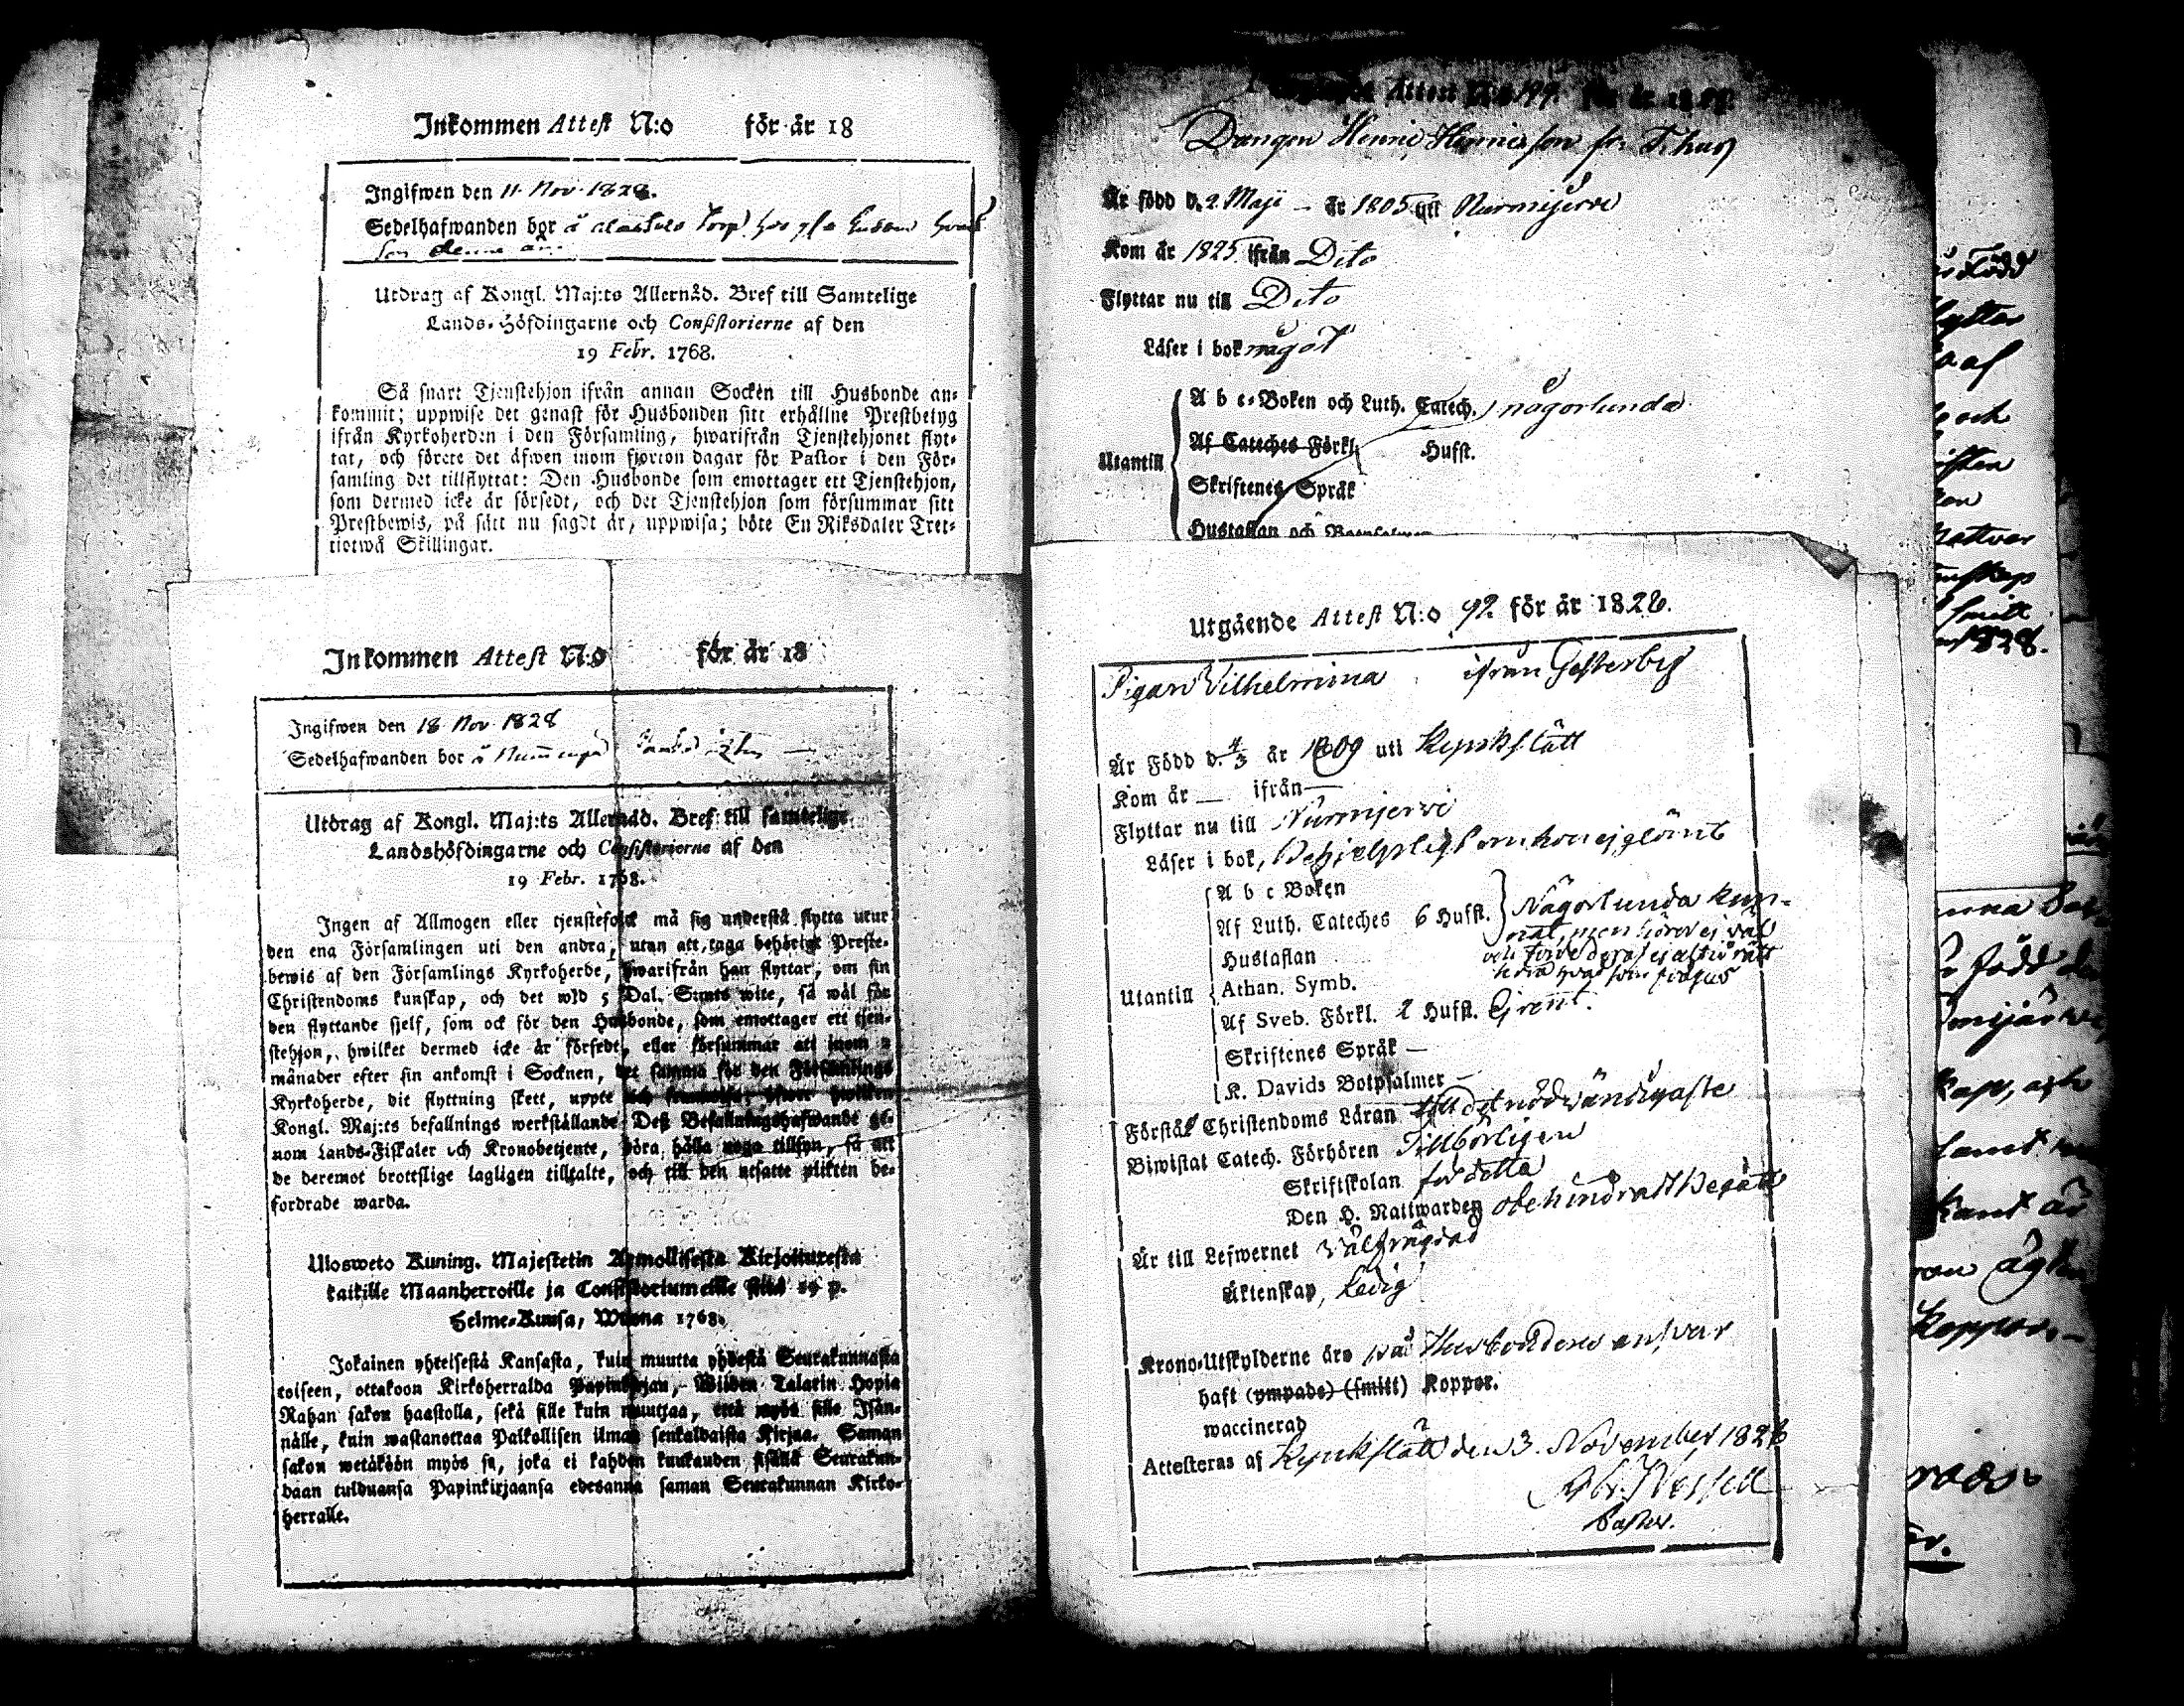 Inkommen Attest N:o för år 18
Ingifwen den 11 Nov. 1828.
Sedelhafwanden bor å torp hos
son denne
Utdrag af Kongl. Maj:ts Allernåd. Bref till Samtelige
Lands-Höfdingarne och Consistorierne af den
19 Febr. 1768.
Så snart Tjenstehjon ifrån annan Socken till Husbonde an-
kommit; uppwise det genast för Husbonden sitt erhållne Prestbetyg
ifrån Kyrkoherden i den Församling, hwarifrån Tjenstehjonet flyt-
tat, och förete det äfwen inom fjorton dagar för Pastor i den För-
samling det tillflyttat: Den Husbonde som emottager ett Tjenstehjon,
som dermed icke är försedt, och det Tjenstehjon som försummar sitt
Prestbewis, på sätt nu sagdt är, uppwisa; böte En Riksdaler Tret-
tiotwå Skillingar.
Inkommen Attest N:o för år 18
Ingifwen den 18 Nov 1828
Sedelhafwanden bor å
Utdrag af Kongl. Maj:ts Allernåd. Bref till samtelige
Landshöfdingarne och Consistorierne af den
19 Febr. 1768.
Ingen af Allmogen eller tjenstefolck må sig understå flytta utur
den ena Församlingen uti den andra, utan att taga behörigt Preste-
bewis af den Församlings Kyrkoherde, hwarifrån han flyttar, om sin
Christendoms kunskap, och det wid 5 Dal. S:mts wite, så wäl för
den flyttande sjelf, som ock för den Husbonde, som emottager ett tjen-
stehjon, hwilket dermed icke är försedt, eller försummar att inom 2
månader efter sin ankomst i Socknen, det samma för den Församlings
Kyrkoherde, dit flyttning skett, uppte
Kongl. Maj:ts befallnings werkställande Deß Befallningshafwande ge-
nom Lands-Fiskaler och Kronobetjente, böra hålla noga tillsyn, så att
de deremot brottslige lagligen tilltalte, och till den utsatte plikten be-
fordrade warda.
Ulosweto Kuning. Majestetin Armollisesta Kirjoituxesta
kaikille Maanherroille ja Consistoriumeille siitä 19 p.
Helme-Kuusa, Wuona 1768.
Jokainen yhteisestä Kansasta, kuin muutta yhdestä Seurakunnasta
toiseen, ottakoon Kirkoherralda Papinkirjan, Wiiden Talarin Hopia
Rahan sakon haastolla, sekä sille kuin muuttaa, että myös sille Isän-
nälle, kuin wastanottaa Palkollisen ilman senkaldaista Kirjaa. Saman
sakon wetäköön myös se, joka ei kahden kuukauden sisällä Seurakun-
daan tulduansa Papinkirjaansa edesanna saman Seurakunnan Kirko-
herralle.
Attest N:o 199. för år 1828.
Drängen Henric Henricsson fr.
Är född d. 2 Maji år 1805 uti Nurmijervi
Kom år 1825 ifrån Dito
Flyttar nu till Dito
Läser i bok något
Utantill
A b c-Boken och Luth. Catech. någorlunda
Af Cateches Förkl. Husst.
Skriftenes Språk
Hustaflan och Botpsalmer
Utgående Attest N:o 92 för år 1828.
Pigan Vilhelmina ifrån Gesterby
Är Född d. 4/3 år 1809 uti Kyrkslätt
Kom år — ifrån —
Flyttar nu till Nurmijervi
Läser i bok, Behjelpligt om hon ej glömt
Utantill
A b c Boken
Af Luth. Cateches 6 Husst. Någorlunda kun-
nat, men hörer ej väl
Hustaflan
Athan. Symb.
Af Sveb. Förkl. 2 Husst. Ej rent.
Skriftenes Språk —
K. Davids Botpsalmer —
Förstår Christendoms Läran till det nödvändigaste
Biwistat Catech. Förhören Tillbörligen
Skriftskolan för detta
Den H. Nattwarden obehindradt Begått
Är till Lefwernet Välfrägdad
Äktenskap, Ledig
Krono-Utskylderne äro på Husbondens answar
haft (ympade) (smitt) Koppor.
waccinerad
Attesteras af Kyrkslätt den 3. November 1828
Pastor.
Född
flyttar
och
Nattvar
smitt
1828.
född
Kant är
Koppor.